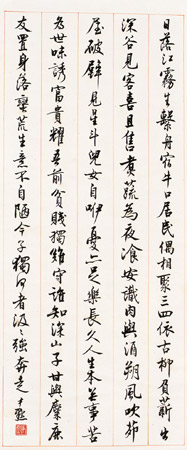 日落江霧生繫舟宿牛口居民偶相聚三四依古柳負薪出
深谷見客喜且售煮蔬為夜飧安識肉與酒朔風吹茆
屋破壁見星斗兒女自咿憂亦足樂長久人生本無事苦
為世味誘富貴耀吾前貧賤獨難守誰知深山子甘與麋鹿
友置身落蠻荒生意不自陋今予獨何者汲汲強奔走